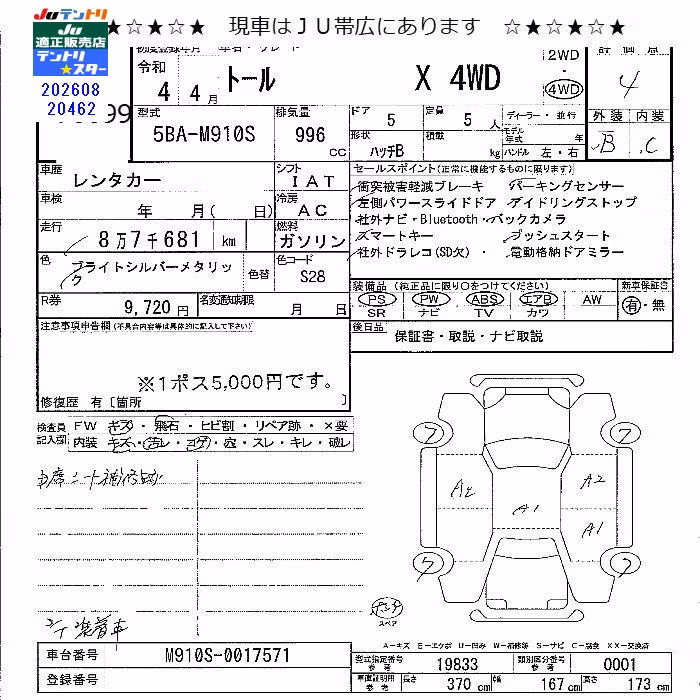 JUテントリ ★☆★☆★ 現車はＪＵ帯広にあります ☆★☆★☆★
JU
適正販売店
テントリ
★スター
202608
20462
初度登録年月 車名・グレード 2WD 評価点
令和 4 年 4 月 トール X 4WD 4WD 4
型式 5BA-M910S 排気量 996 CC ドア 5 定員 5 人 ディーラー・並行 外装 内装
形状 ハッチB 積載 kg モデル年式 年 B C
ハンドル 左・右
車歴 レンタカー シフト IAT セールスポイント(正常に機能するものに限ります)
車検 年 月( 日) 冷房 AC 衝突被害軽減ブレーキ パーキングセンサー
左側パワースライドドア アイドリングストップ
走行 8万7千681 km 燃料 ガソリン 社外ナビ・Bluetooth・バックカメラ
スマートキー プッシュスタート
色 ブライトシルバーメタリック 色替 色コード S28 社外ドラレコ(SD欠)・ 電動格納ドアミラー
装備品 (純正品に限り○をつけてください) 新車保証書
R券 9,720円 名変期限 月 日 PS PW ABS エアB AW 有・無
SR ナビ TV カワ
注意事項申告欄(不具合内容等は具体的に記入して下さい) 後日品 保証書・取説・ナビ取説
※1ポス5,000円です。
修復歴 有〔箇所 〕
検査員記入欄 FW キズ・飛石・ヒビ割・リペア跡・×要
内装 キズ・汚レ・コゲ・穴・スレ・キレ・破レ
7 7
A2 A1 A2
A1
7 7
スペア
A＝キズ E＝エクボ U＝凹み W＝補修等 S＝サビ C＝腐食 XX＝交換済
車台番号 M910S-0017571 型式指定番号 参考 19833 類別区分番号 参考 0001
登録番号 車庫証明用 参考 長さ 370 cm 幅 167 cm 高さ 173 cm